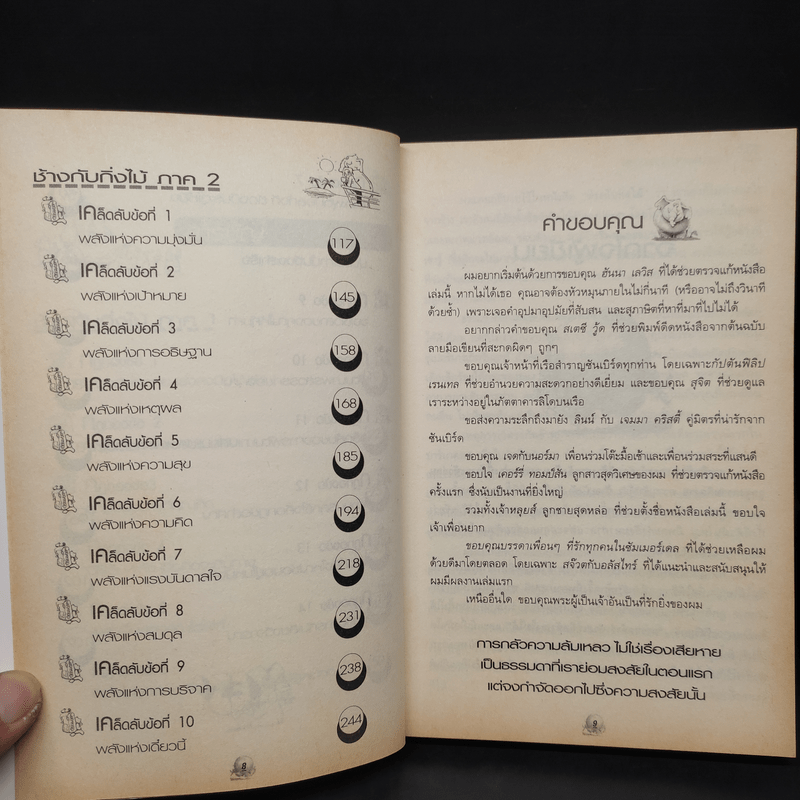 ช้างกับกิ่งไม้ ภาค 2
เคล็ดลับข้อที่ 1
พลังแห่งความมุ่งมั่น 117
เคล็ดลับข้อที่ 2
พลังแห่งเป้าหมาย 145
เคล็ดลับข้อที่ 3
พลังแห่งการอธิษฐาน 158
เคล็ดลับข้อที่ 4
พลังแห่งเหตุผล 168
เคล็ดลับข้อที่ 5
พลังแห่งความสุข 185
เคล็ดลับข้อที่ 6
พลังแห่งความคิด 194
เคล็ดลับข้อที่ 7
พลังแห่งแรงบันดาลใจ 218
เคล็ดลับข้อที่ 8
พลังแห่งสมดุล 231
เคล็ดลับข้อที่ 9
พลังแห่งการบริจาค 238
เคล็ดลับข้อที่ 10
พลังแห่งเดี๋ยวนี้ 244
8
คำขอบคุณ
ผมอยากเริ่มต้นด้วยการขอบคุณ ฮันนา เลวิส ที่ได้ช่วยตรวจแก้หนังสือ
เล่มนี้ หากไม่ได้เธอ คุณอาจต้องหัวหมุนภายในไม่กี่นาที (หรืออาจไม่ถึงวินาที
ด้วยซ้ำ) เพราะเจอคำอุปมาอุปมัยที่สับสน และสุภาษิตที่หาที่มาที่ไปไม่ได้
อยากกล่าวคำขอบคุณ สเตซี วู้ด ที่ช่วยพิมพ์ดีดหนังสือจากต้นฉบับ
ลายมือเขียนที่สะกดผิดๆ ถูกๆ
ขอบคุณเจ้าหน้าที่เรือสำราญซันเบิร์ดทุกท่าน โดยเฉพาะกัปตันฟิลิป
เรนเทล ที่ช่วยอำนวยความสะดวกอย่างดีเยี่ยม และขอบคุณ สุจิต ที่ช่วยดูแล
เราระหว่างอยู่ในภัตตาคารลิโดบนเรือ
ขอส่งความระลึกถึงมายัง ลินน์ กับ เจมมา คริสตี้ คู่มิตรที่น่ารักจาก
ซันเบิร์ด
ขอบคุณ เจตกับนอร์มา เพื่อนร่วมโต๊ะมื้อเช้าและเพื่อนร่วมสระที่แสนดี
ขอบใจ เคอร์รี่ ทอมป์สัน ลูกสาวสุดวิเศษของผม ที่ช่วยตรวจแก้หนังสือ
ครั้งแรก ซึ่งนับเป็นงานที่ยิ่งใหญ่
รวมทั้งเจ้าหลุยส์ ลูกชายสุดหล่อ ที่ช่วยตั้งชื่อหนังสือเล่มนี้ ขอบใจ
เจ้าเพื่อนยาก
ขอบคุณบรรดาเพื่อนๆ ที่รักทุกคนในซัมเมอร์เดล ที่ได้ช่วยเหลือผม
ด้วยดีมาโดยตลอด โดยเฉพาะ สจ๊วตกับอลัสไทร์ ที่ได้แนะนำและสนับสนุนให้
ผมมีผลงานเล่มแรก
เหนืออื่นใด ขอบคุณพระผู้เป็นเจ้าอันเป็นที่รักยิ่งของผม
การกลัวความล้มเหลว ไม่ใช่เรื่องเสียหาย
เป็นธรรมดาที่เราย่อมสงสัยในตอนแรก
แต่จงกำจัดออกไปซึ่งความสงสัยนั้น
9